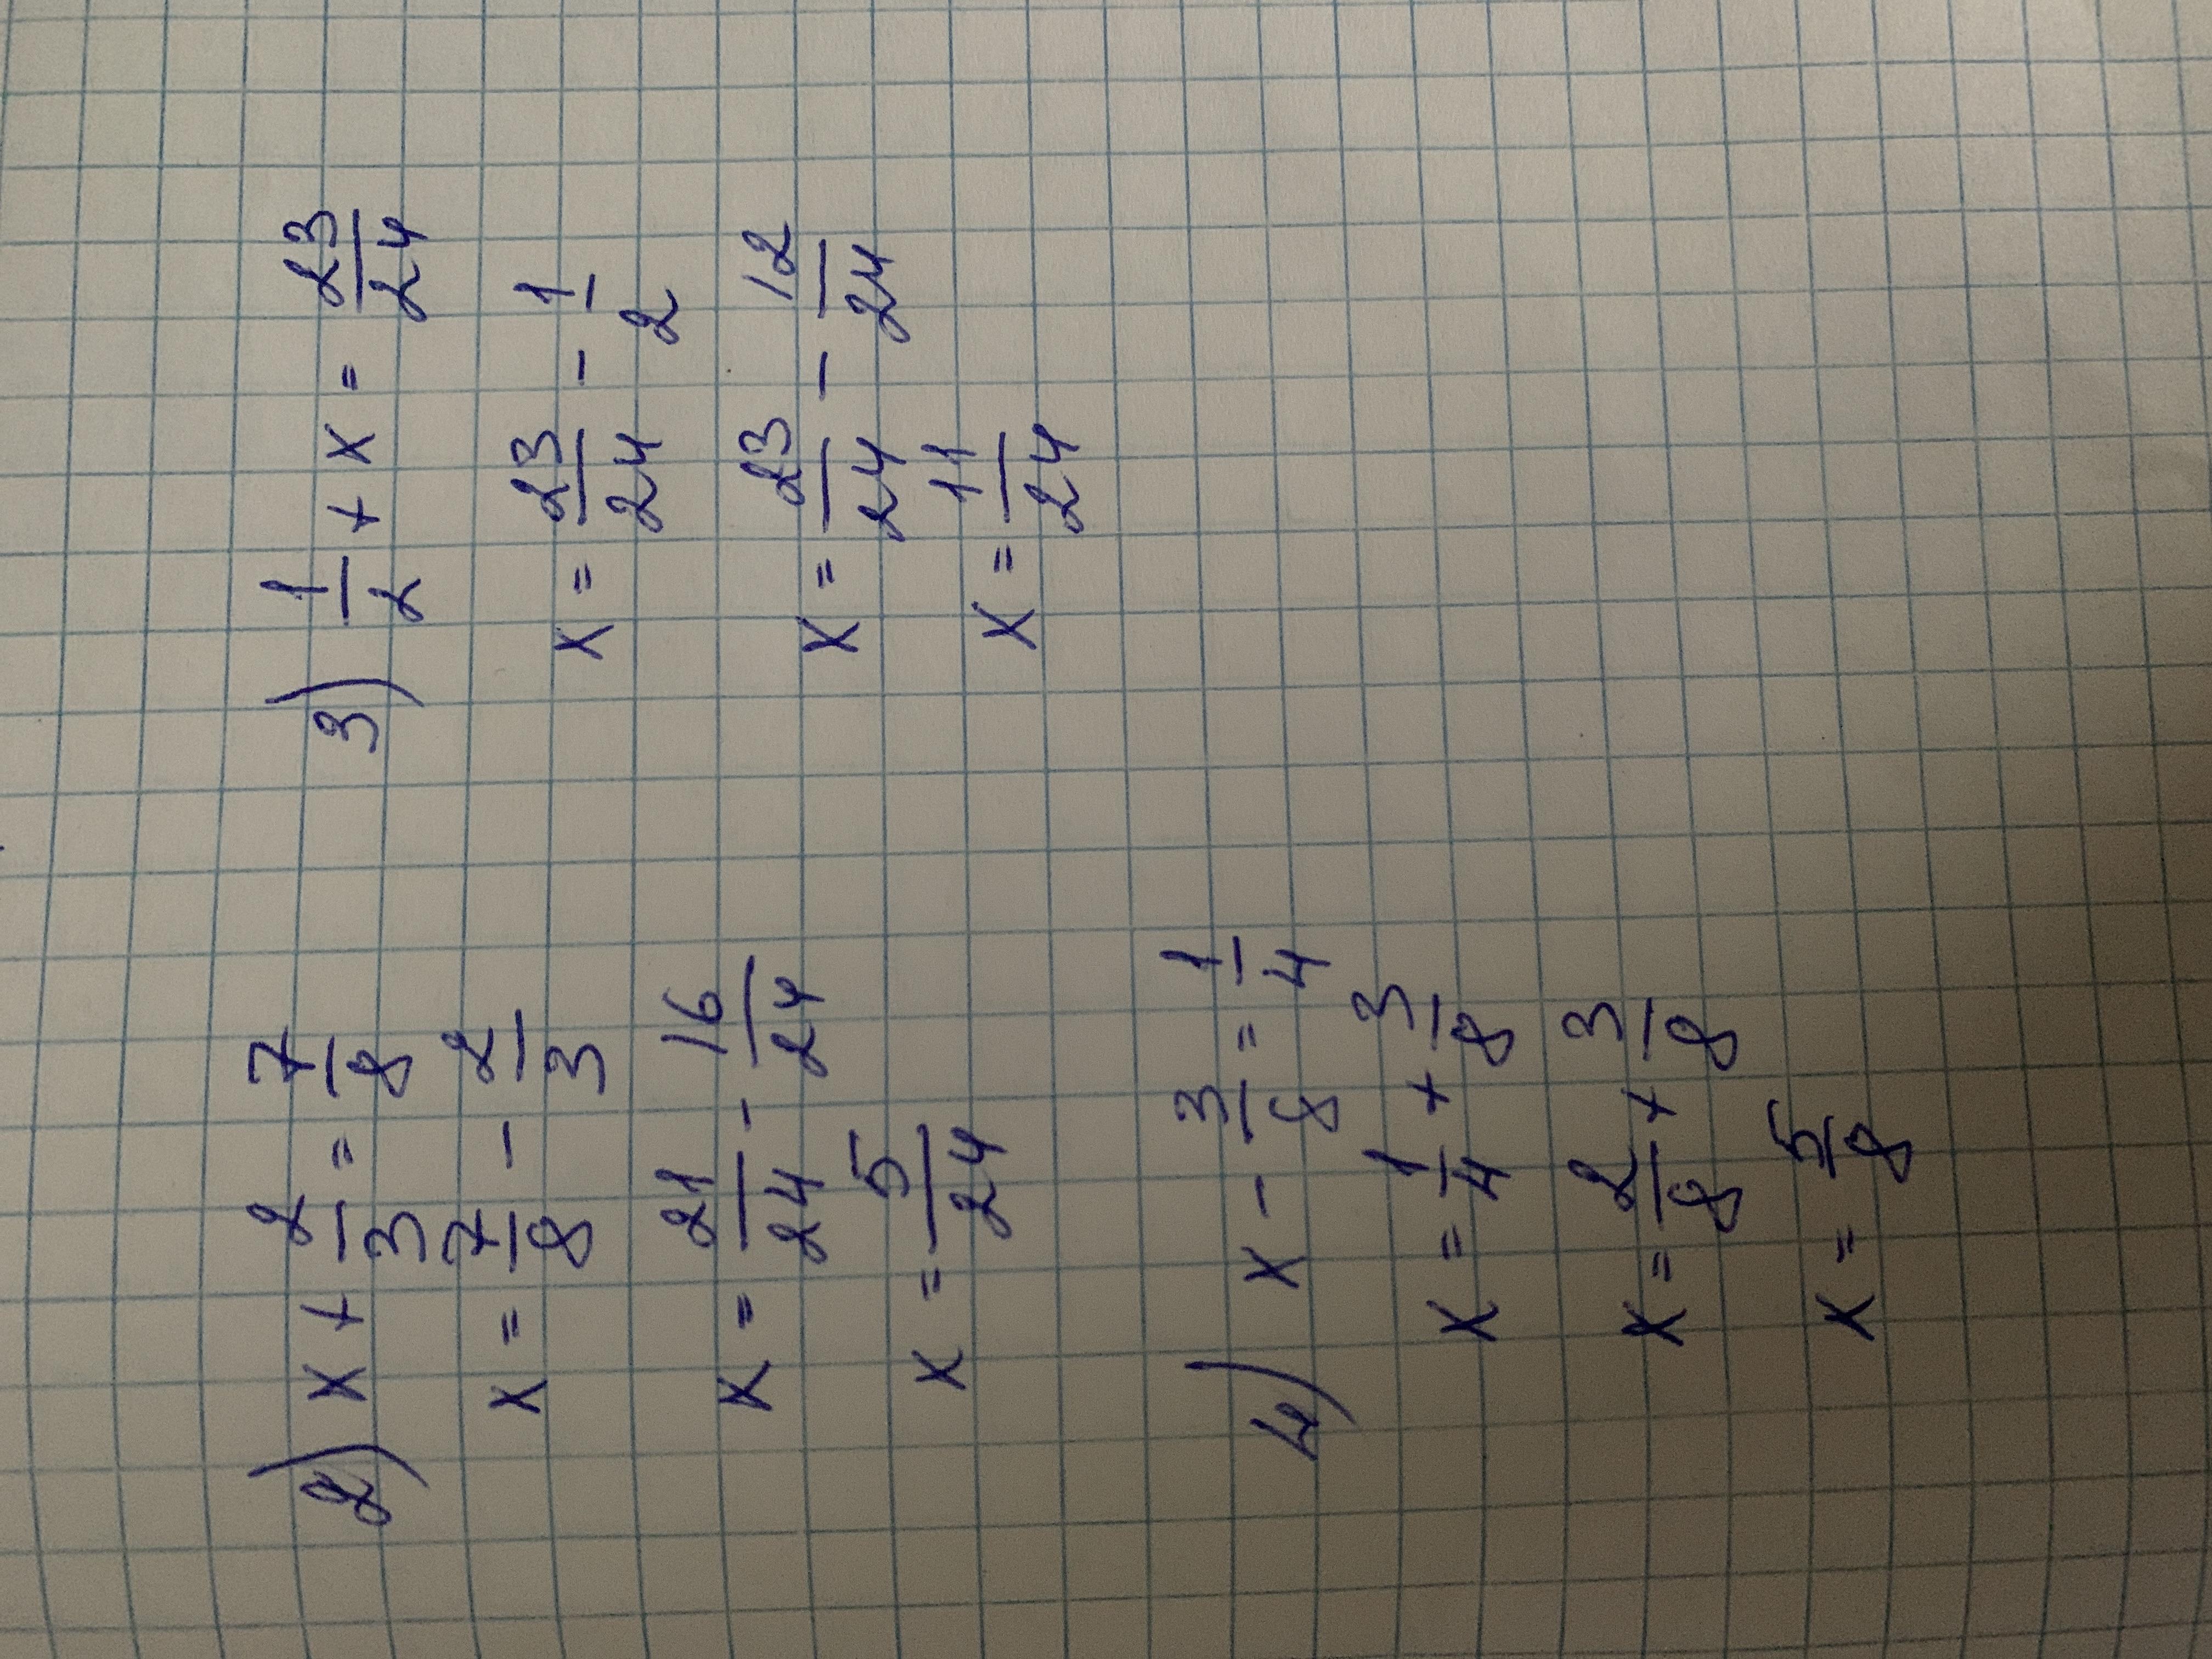 2) x + 2/3 = 7/8
x = 7/8 - 2/3
x = 21/24 - 16/24
x = 5/24
3) 1/2 + x = 23/24
x = 23/24 - 1/2
x = 23/24 - 12/24
x = 11/24
4) x - 3/8 = 1/4
x = 1/4 + 3/8
x = 2/8 + 3/8
x = 5/8